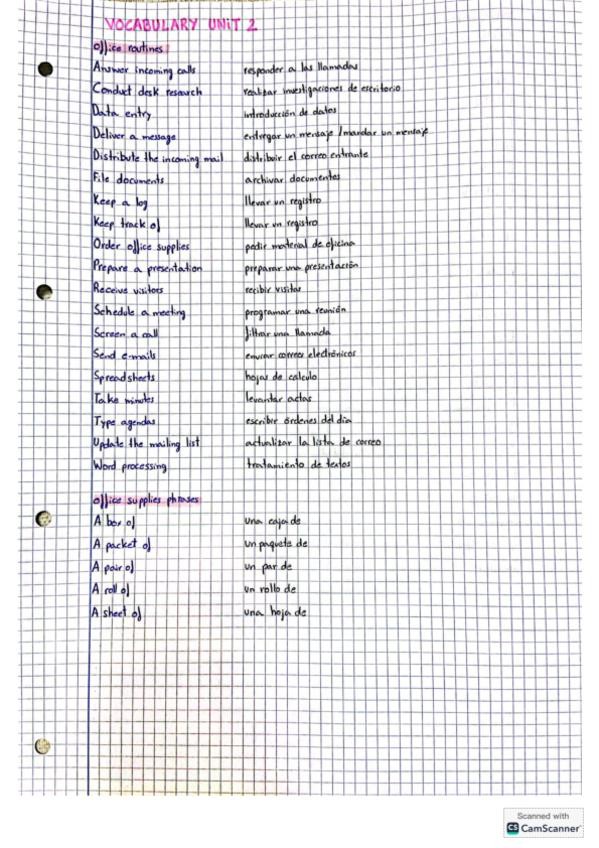 VOCABULARY UNIT 2
office routines
Answer incoming calls responder a las llamadas
Conduct desk research realizar investigaciones de escritorio
Data entry introducción de datos
Deliver a message entregar un mensaje / mandar un mensaje
Distribute the incoming mail distribuir el correo entrante
File documents archivar documentos
Keep a log llevar un registro
Keep track of llevar un registro
Order office supplies pedir material de oficina
Prepare a presentation preparar una presentación
Receive visitors recibir visitas
Schedule a meeting programar una reunión
Screen a call filtrar una llamada
Send e-mails enviar correos electrónicos
Spreadsheets hojas de calculo
Take minutes levantar actas
Type agendas escribir órdenes del día
Update the mailing list actualizar la lista de correo
Word processing tratamiento de textos
office supplies phrases
A box of una caja de
A packet of un paquete de
A pair of un par de
A roll of un rollo de
A sheet of una hoja de
Scanned with
CS CamScanner